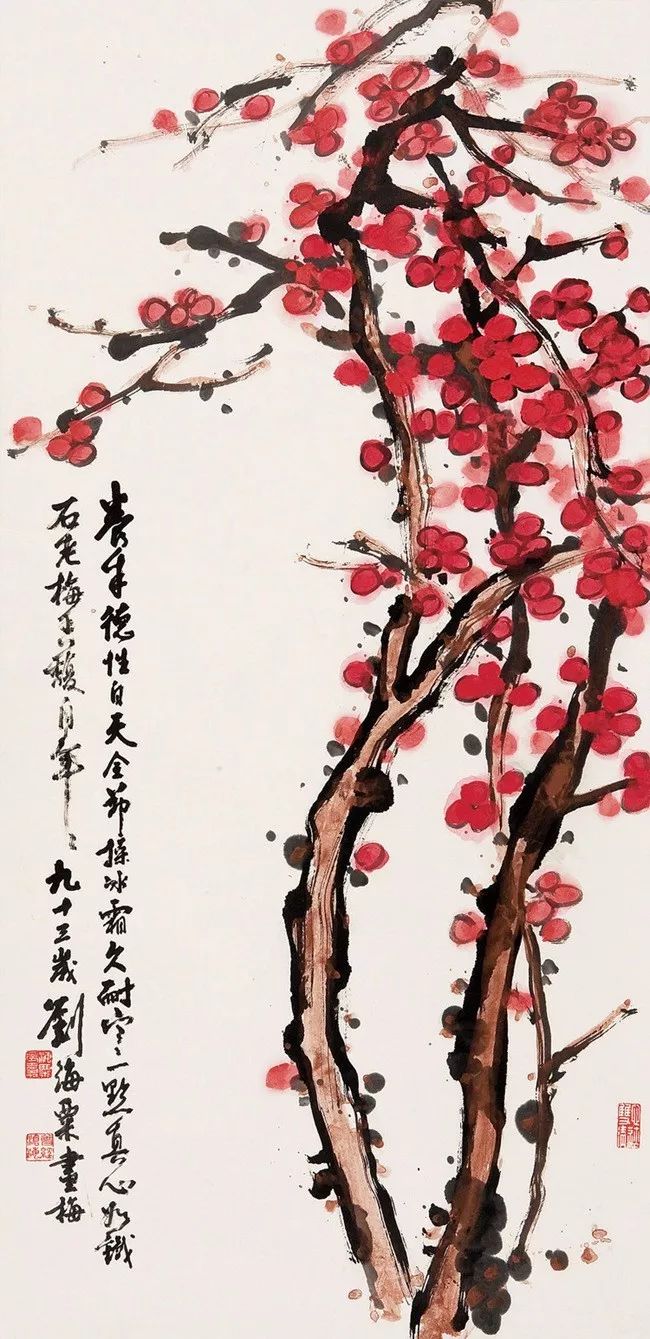 耆年德性自天全節操冰霜久耐寒一點真心如鐵
石老梅香馥自年〻九十三歲劉海粟畫梅